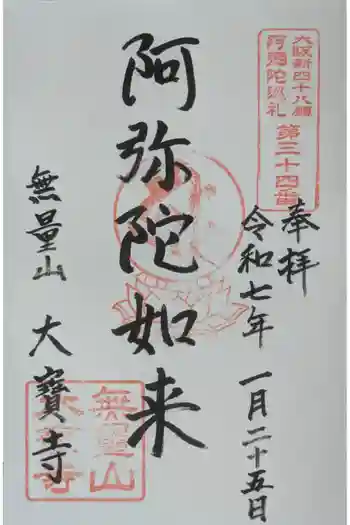 大阪新四十八願
阿弥陀巡礼
第三十四番
奉拝
令和七年 一月二十五日
阿弥陀如来
無量山 大寳寺
無量山
大寳寺